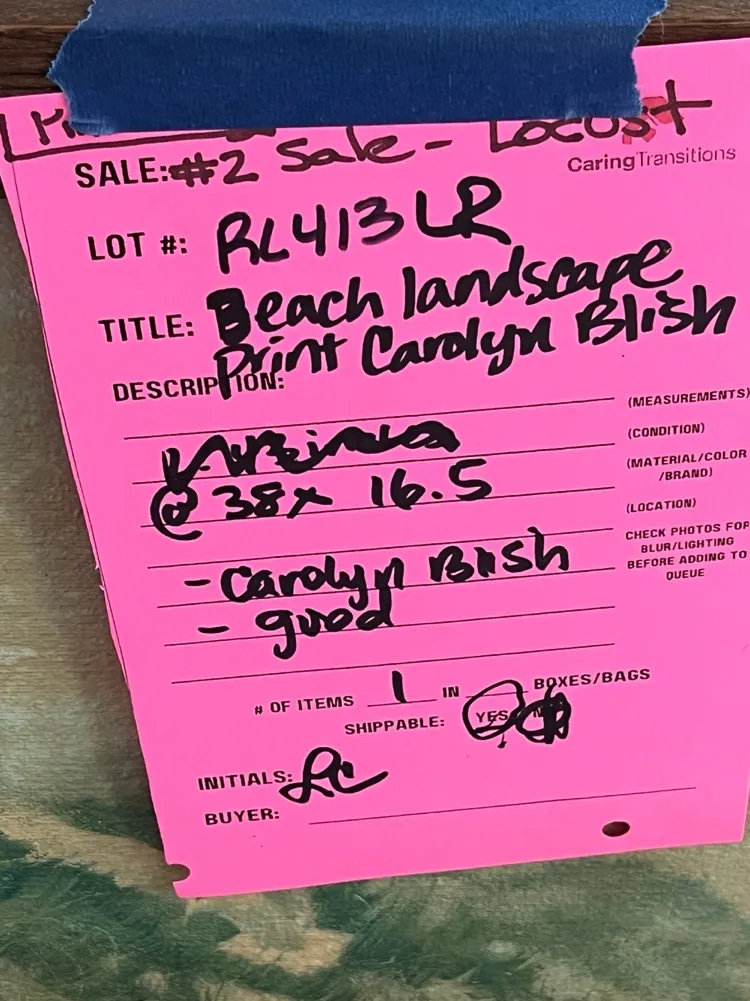 SALE: #2 Sale - Locust
CaringTransitions
LOT #: RL413LR
TITLE: Beach landscape
print Carolyn Blish
DESCRIPTION:
(MEASUREMENTS)
(CONDITION)
@ 38x 16.5
(MATERIAL/COLOR
/BRAND)
(LOCATION)
- Carolyn Blish
CHECK PHOTOS FOR
BLUR/LIGHTING
BEFORE ADDING TO
QUEUE
- good
# OF ITEMS 1 IN BOXES/BAGS
SHIPPABLE: YES
INITIALS: LC
BUYER: